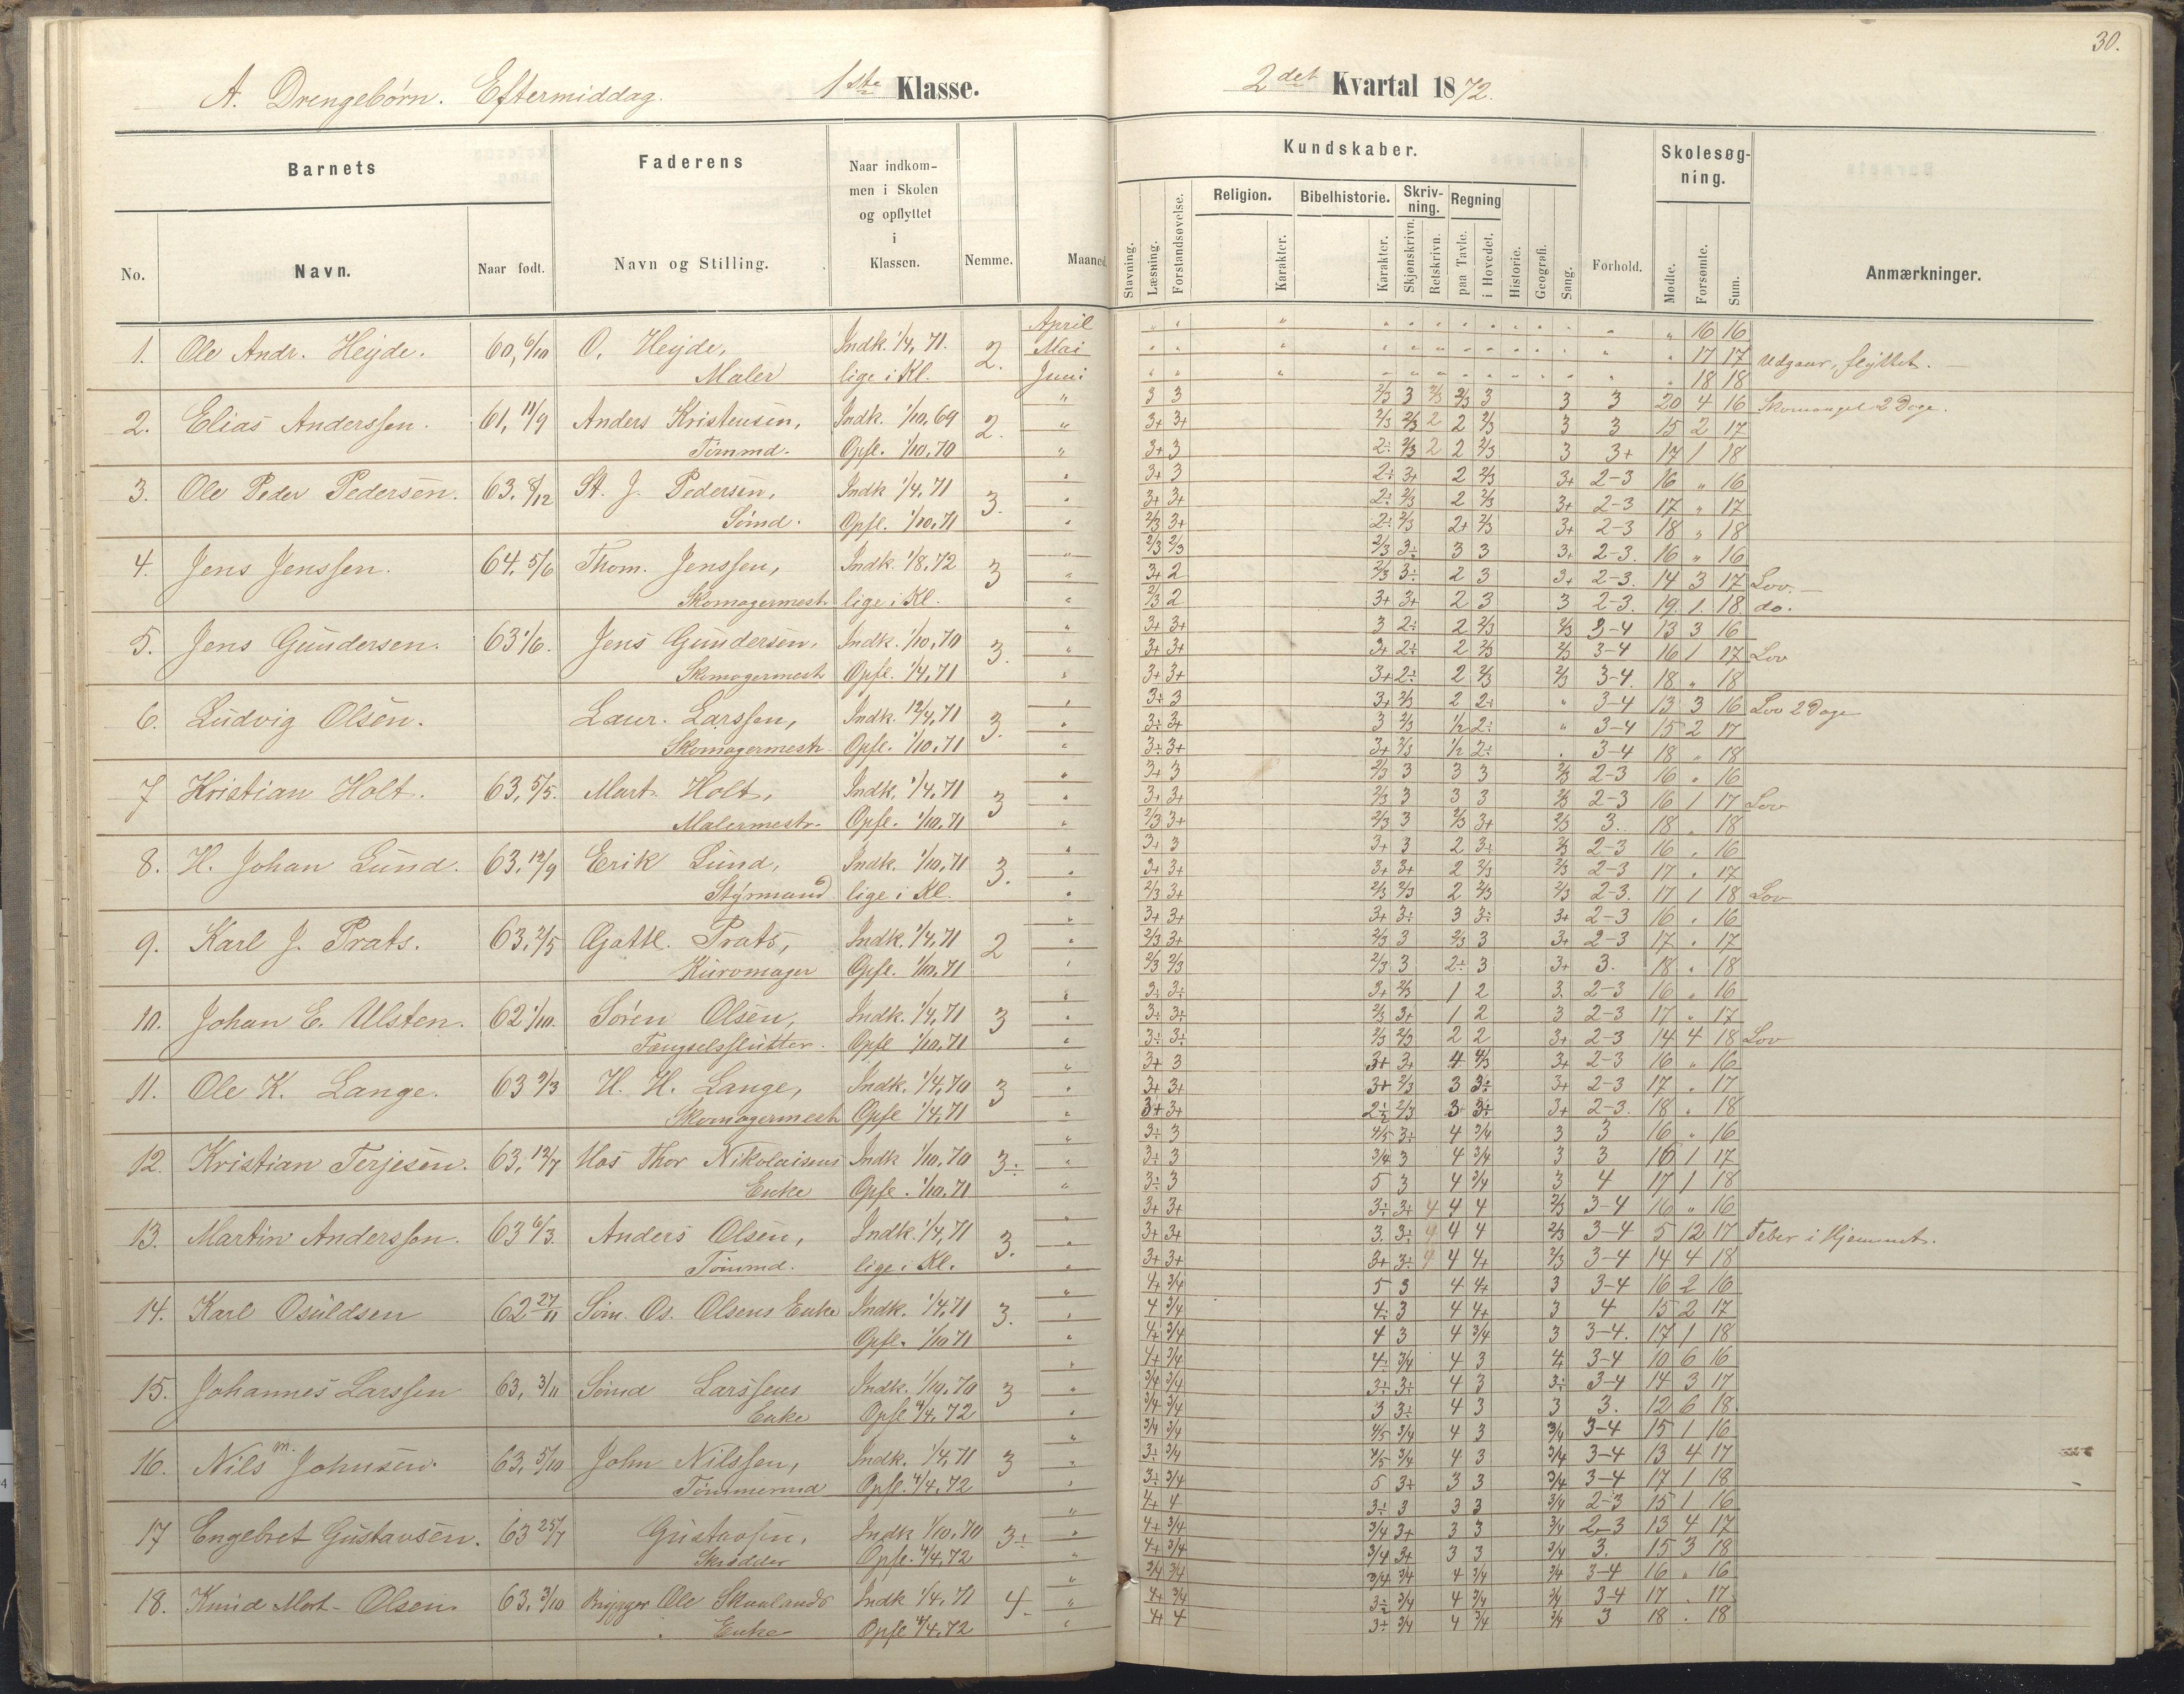 30.
A. Drengebørn. Eftermiddag. 1ste Klasse. 2det Kvartal 1872.
Barnets Faderens Naar indkommen i Skolen og opflyttet i Klassen. Nemme. Maaned Kundskaber. Forhold. Skolesøgning. Anmærkninger.
No. Navn. Naar født. Navn og Stilling.
Stavning. Læsning. Forstandsøvelse. Religion. Karakter. Bibelhistorie. Karakter. Skrivning. Skjønskrivn. Retskrivn. Regning paa Tavle. i Hovedet. Historie. Geografi. Sang. Mødte. Forsømte. Sum.
April " 16 16
1. Ole Andr. Heyde. 60, 6/10 O. Heyde, Indk. 1/4, 71. 2. Mai " 17 17 Udgaar, flyttet.
Maler lige i Kl. Juni " 18 18
" 3 3 2/3 3 2/3 2/3 3 3 3 20 4 16 Skomangel 2 Dage.
2. Elias Anderssen. 61, 11/9 Anders Kristensen, Indk. 1/10, 69 2. " 3+ 3+ 2/3 2/3 2 2 2/3 3 3 15 2 17
Tømmd. Opfl. 1/10, 70 " 3+ 3 2÷ 2/3 2 2 2/3 3 3+ 17 1 18
" 3+ 3 2÷ 3+ 2 2/3 3+ 2-3 16 " 16
3. Ole Peder Pedersen. 63. 8/12 St. J. Pedersen, Indk 1/4, 71 3. " 3+ 3+ 2÷ 2/3 2 2/3 3+ 2-3 17 " 17
Sømd. Opfl. 1/10, 71 " 2/3 3+ 2÷ 2/3 2+ 2/3 3+ 2-3 18 " 18
" 2/3 2/3 2/3 3÷ 3 3 3+ 2-3. 16 " 16
4. Jens Jenssen. 64. 5/6 Thom. Jenssen, Indk. 1/8, 72 3 " 3+ 2 2/3 3÷ 2 3 3+ 2-3. 14 3 17 Lov.
Skomagermest. lige i Kl. " 2/3 2 3+ 3+ 2 3 3 2-3. 19. 1. 18. do.
" 3+ 3+ 3 2÷ 2 2/3 2/3 3-4 13 3 16
5. Jens Gundersen. 63 1/6. Jens Gundersen. Indk. 1/10, 70 3. " 3+ 3+ 3+ 2÷ 2 2/3 2/3 3-4 16 1 17 Lov
Skomagermest Opfl. 1/4, 71 " 3+ 3+ 3+ 2÷ 2 2/3 2/3 3-4. 18 " 18
" 3÷ 3 3+ 2/3 2 2÷ " 3-4 13 3 16 Lov 2 Dage
6. Ludvig Olsen. Laur. Larssen, Indk. 12/4, 71 3. " 3÷ 3+ 3 2/3 1/2 2÷ " 3-4 15 2 17
Skomagermestr Opfl. 1/10, 71 " 3÷ 3+ 3+ 2/3 1/2 2÷ . 3-4 18 " 18
" 3+ 3 2/3 3 3 3 2/3 2-3 16 " 16
7 Kristian Holt. 63, 5/5. Mart. Holt, Indk. 1/4, 71 3 " 3+ 3+ 2/3 3 3 3 2/3 2-3 16 1 17 Lov
Malermestr. Opfl. 1/10, 71 " 2/3 3+ 2/3 3 2/3 3+ 2/3 3. 18 " 18
" 3+ 3 3+ 3 2 3+ 2/3 2-3 16 " 16
8. H. Johan Lund. 63, 12/9 Erik Lund, Indk. 1/10, 71 3. " 3+ 3+ 3+ 3+ 2 2/3 2/3 2-3 17 " 17
Styrmand lige i Kl. " 2/3 3+ 2/3 2/3 2 2/3 2/3 2-3. 17 1 18 Lov
" 3+ 3+ 3+ 3÷ 3 3÷ 3+ 2-3 16 " 16
9. Karl J. Prats. 63, 2/5 Gottl. Prats, Indk. 1/4, 71 2 " 2/3 3+ 2/3 3 2/3 3 3+ 2-3 17 " 17
Kurvmager Opfl. 1/10, 71 " 2/3 2/3 2/3 3 2÷ 3 3+ 3. 18 " 18
" 3÷ 3÷ 3+ 2/3 1 2 3. 2-3 16 " 16
10. Johan E. Ulsten. 62 1/10. Søren Olsen, Indk. 1/4, 71 3 " 3÷ 3÷ 2/3 3+ 1 2 3 2-3 17 " 17
Fængselsslutter. Opfl 1/10, 71 " 3÷ 3÷ 2/3 2/3 2 2 3+ 2-3 14 4 18 Lov
" 3+ 3 3+ 3+ 4 4/3 3+ 2-3 16 " 16
11. Ole K. Lange. 63 9/3 H. H. Lange, Indk. 1/4, 70 3 " 3+ 3+ 3+ 2/3 3 3÷ 3+ 2-3 17 " 17
Skomagermestr Opfl 1/4, 71 " 3+ 3+ 2÷ 2/3 3 3÷ 3+ 2-3. 18 " 18
" 3÷ 3 4/5 3÷ 4 3/4 3 3 16 " 16
12. Kristian Terjesen. 63, 12/7 Hos Thor Nikolaisens Indk 1/10, 70 3÷ " 3÷ 3 3/4 3 4 3/4 3 3 16 1 17
Enke Opfl. 1/10, 71 " 3÷ 3 5 3 4 3/4 3 4 17 1 18
" 3+ 3+ 3÷ 3+ 4 4 4 2/3 3-4 16 " 16
13. Martin Anderssen. 63 6/3. Anders Olsen, Indk. 1/4, 71 3. " 3+ 3+ 3. 3÷ 4 4 4 2/3 3-4 5 12 17 Feber i Hjemmet.
Tømmd. lige i Kl. " 3+ 3+ 3+ 3÷ 4 4 4+ 2/3 3-4 14 4 18
" 4+ 3/4 5 3 4 4+ 3 3-4 16 2 16
14. Karl Osuldsen 62 27/11 Søm. Os. Olsens Enke Indk. 1/4, 71 3. " 4 3/4 4÷ 3 4 4+ 3 4 15 2 17
Opfl. 1/10 71 " 4+ 3/4 4 3 4 3/4 3 3-4. 17 1 18
" 4+ 3/4 4÷ 3/4 4 3 4 3-4 10 6 16
15. Johannes Larssen 63, 3/11 Sømd Larssens Indk. 1/10, 70 3 " 3/4 3/4 3÷ 3÷ 4 3 3÷ 3-4 14 3 17
Enke Opfl. 4/4, 72 " 3/4 3/4 3 3÷ 4 3 3 3. 12 6 18.
" 3/4 3/4 4/5 3/4 4 3 3/4 3-4 15 1 16
16. Nils m. Johnsen. 63, 5/10 John Nilssen, Indk. 1/4, 71 3 " 3÷ 3/4 4/5 3/4 4 3 3/4 3-4 13 4 17
Tømmermd Opfl. 4/4, 72 " 3÷ 3/4 5 3÷ 3 3 3/4 3-4 17 1 18
" 4+ 4 3÷ 3 3 3 3/4 2-3 15 1 16
17 Engebret Gustavsen. 63 25/7 Gustavsen, Indk 1/10, 70 3÷ " 4+ 3/4 3/4 3+ 3 3 3/4 2-3 13 4 17
Skrædder Opfl. 4/4, 72 " 4+ 3/4 3/4 3+ 3 3 3/4 3. 15 3 18
" 3/4 3/4 3/4 3/4 4 3/4 3/4 3-4 16 " 16
18. Knud Mort. Olsen 63, 3/10 Brygger Ole Skaalands Indk 1/4, 71 4. " 4+ 3/4 3÷ 3/4 4 3/4 3/4 3-4 17 . 17
Enke Opfl 4/4, 72 " 4+ 4 3÷ 3/4 4 3/4 3/4 3 18 . 18